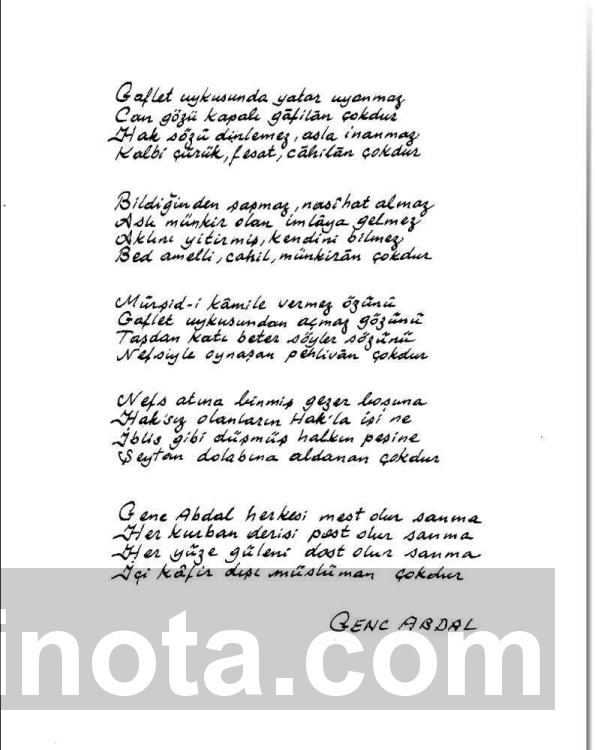 Gaflet uykusunda yatar uyanmaz
Can gözü kapalı gāfilān çokdur
Hak sözü dinlemez, asla inanmaz
Kalbi çürük, fesat, cāhilān çokdur
Bildiğinden şaşmaz, nasîhat almaz
Aslı münkir olan imlāya gelmez
Aklını yitirmiş, kendini bilmez
Bed amelli, cahil, münkirān çokdur
Mürşid-i kāmile vermez özünü
Gaflet uykusundan açmaz gözünü
Taşdan katı beter söyler sözünü
Nefsiyle oynaşan pehlivān çokdur
Nefs atına binmiş gezer boşuna
Hak'sız olanların Hak'la işi ne
İblis gibi düşmüş halkın peşine
Şeytan dolabına aldanan çokdur
Genc Abdal herkesi mest olur sanma
Her kurban derisi post olur sanma
Her yüze güleni dost olur sanma
İçi kâfir dışı müslüman çokdur
GENC ABDAL
inota.com